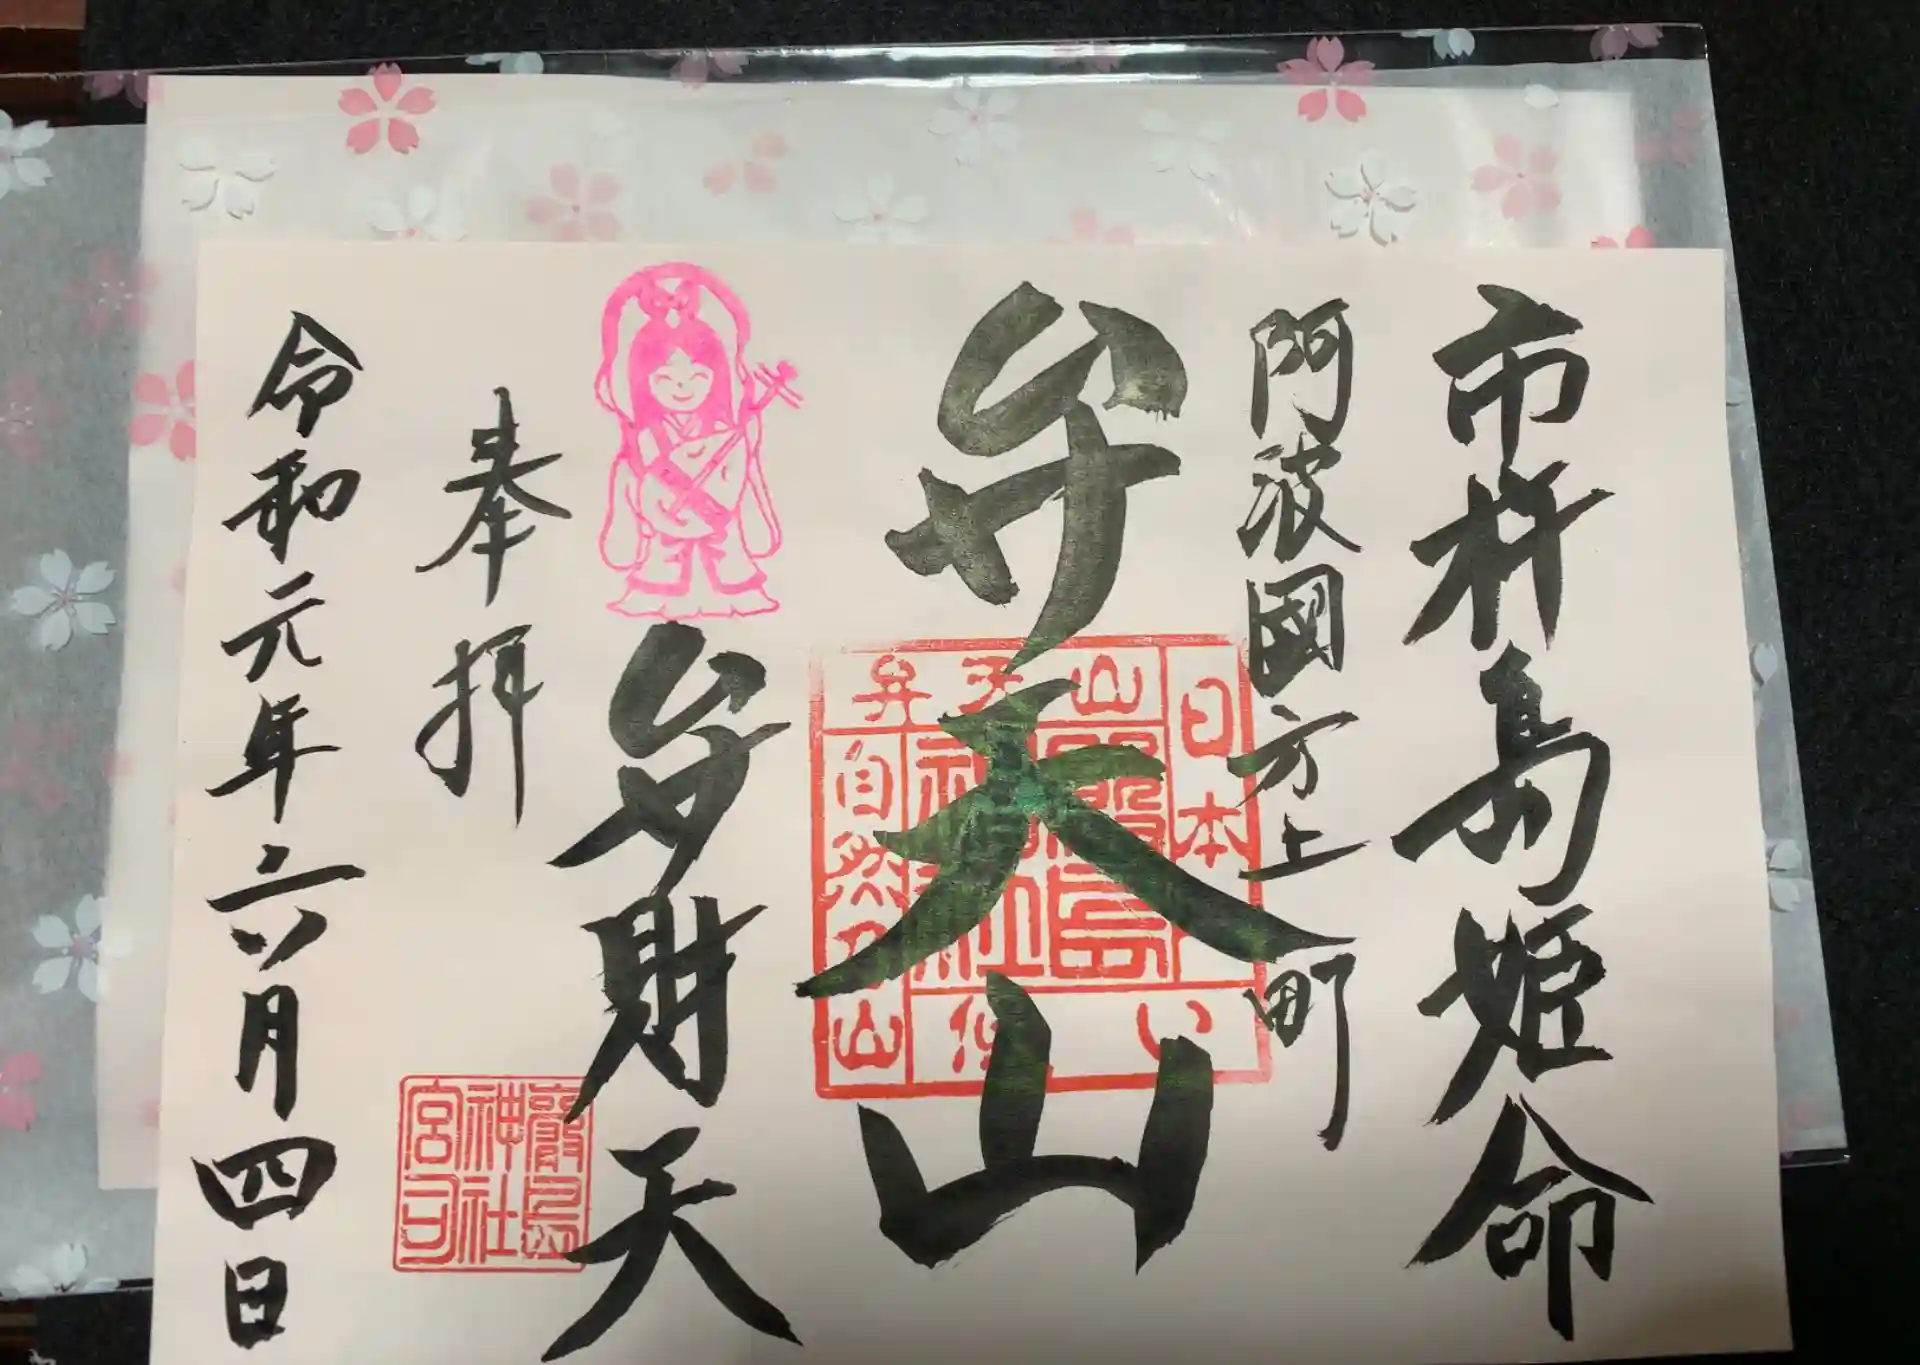 市杵島姫命
阿波國方上町
弁天山
日本一
弁天山
厳島
神社
自然乃山
低い
弁財天
奉拝
厳島
神社
宮司
令和元年六月四日